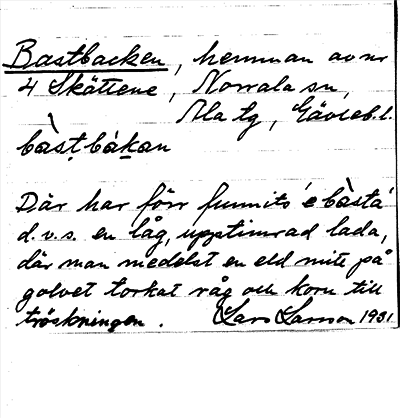 Bastbacken, hemman av nr
4 Skättene, Norrala sn,
Ala tg, Gävleb. l.
bàsṭbákan
Där har förr funnits 'e bàsta'
d.v.s. en låg, upptimrad lada,
där man medelst en eld mitt på
golvet torkat råg och korn till
tröskningen. Lars Larsson 1931